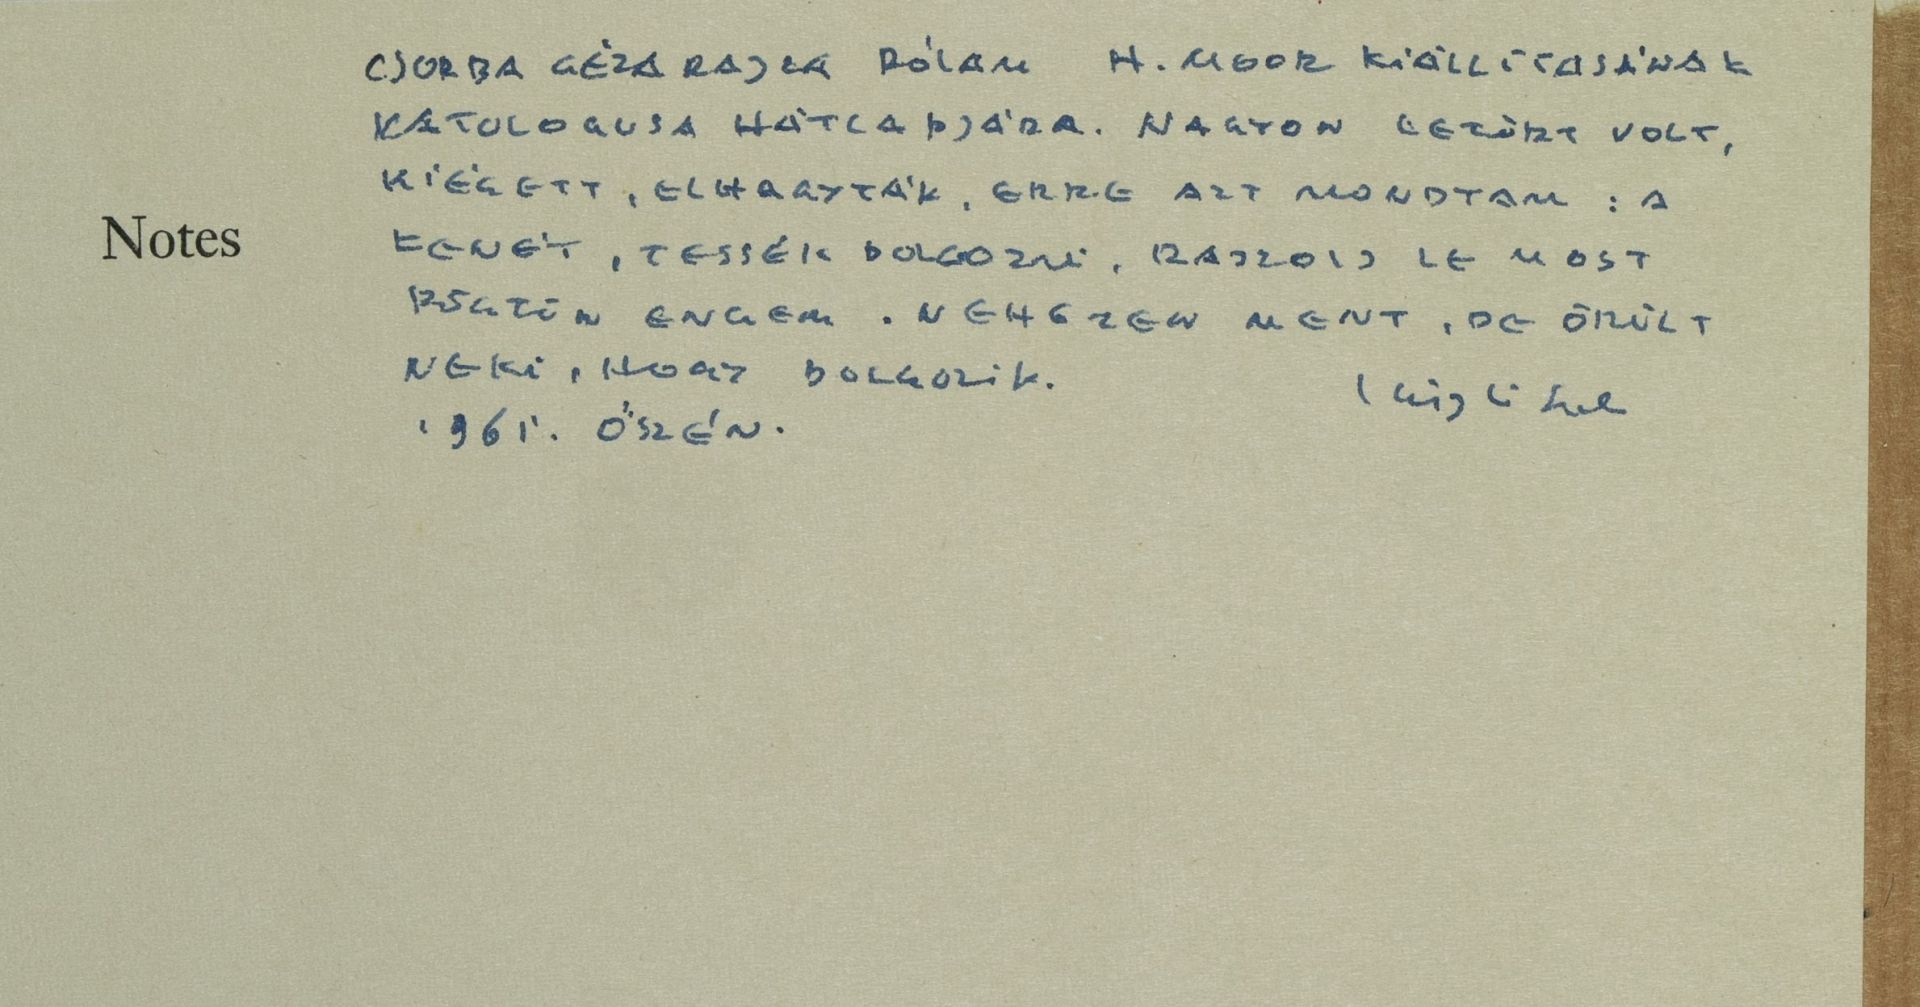 CSORBA GÉZA RAJZA RÓLAM H. MOOR KIÁLLÍTASÁNAK
KATOLOGUSA HÁTLAPJÁRA. NAGYON LETÖRT VOLT,
KIÉGETT, ELHAGYTÁK, ERRE AZT MONDTAM : A
Notes
TESSÉK DOLGOZNI, RAJZOLJ LE MOST
RÖGTÖN ENGEM. NEHEZEN MENT, DE ÖRÜLT
NEKI, HOGY DOLGOZIK.
ŐSZÉN.